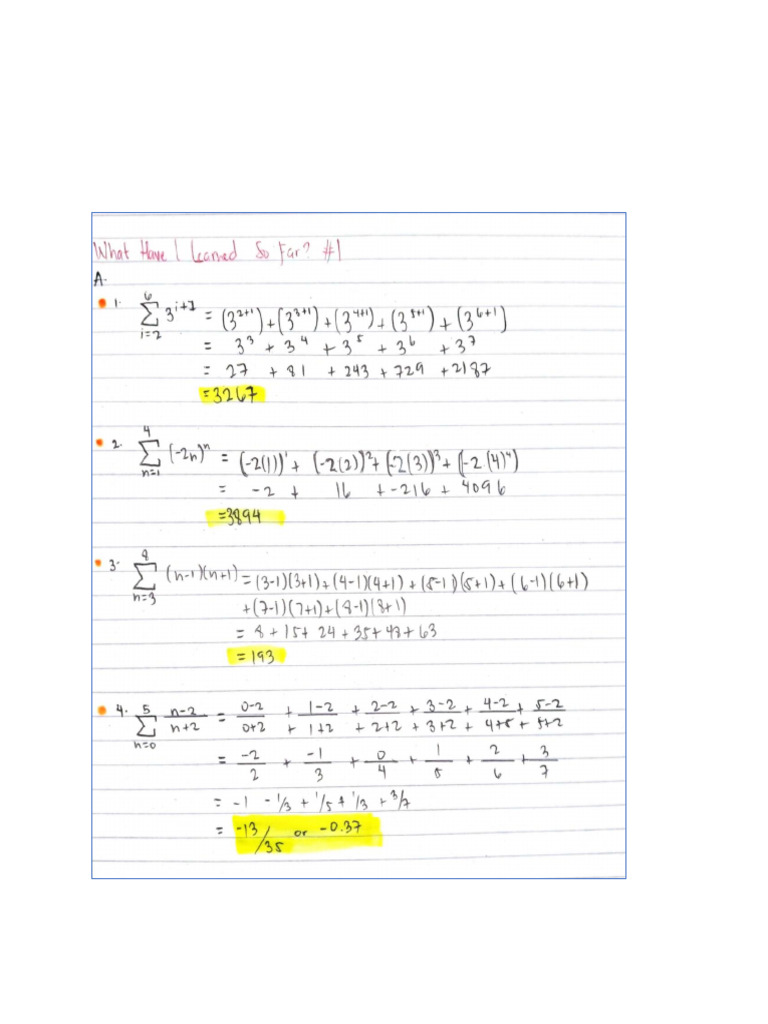 What Have I Learned So Far? #1
A.
1. 6 ∑ i=2 3^(i+1) = (3^(2+1)) + (3^(3+1)) + (3^(4+1)) + (3^(5+1)) + (3^(6+1))
= 3^3 + 3^4 + 3^5 + 3^6 + 3^7
= 27 + 81 + 243 + 729 + 2187
= 3267
2. 4 ∑ n=1 (-2n)^n = (-2(1))^1 + (-2(2))^2 + (-2(3))^3 + (-2(4)^4)
= -2 + 16 + -216 + 4096
= 3894
3. 8 ∑ n=3 (n-1)(n+1) = (3-1)(3+1) + (4-1)(4+1) + (5-1)(5+1) + (6-1)(6+1)
+ (7-1)(7+1) + (8-1)(8+1)
= 8 + 15 + 24 + 35 + 48 + 63
= 193
4. 5 ∑ n=0 n-2/n+2 = 0-2/0+2 + 1-2/1+2 + 2-2/2+2 + 3-2/3+2 + 4-2/4+2 + 5-2/5+2
= -2/2 + -1/3 + 0/4 + 1/5 + 2/6 + 3/7
= -1 - 1/3 + 1/5 + 1/3 + 3/7
= -13/35 or -0.37